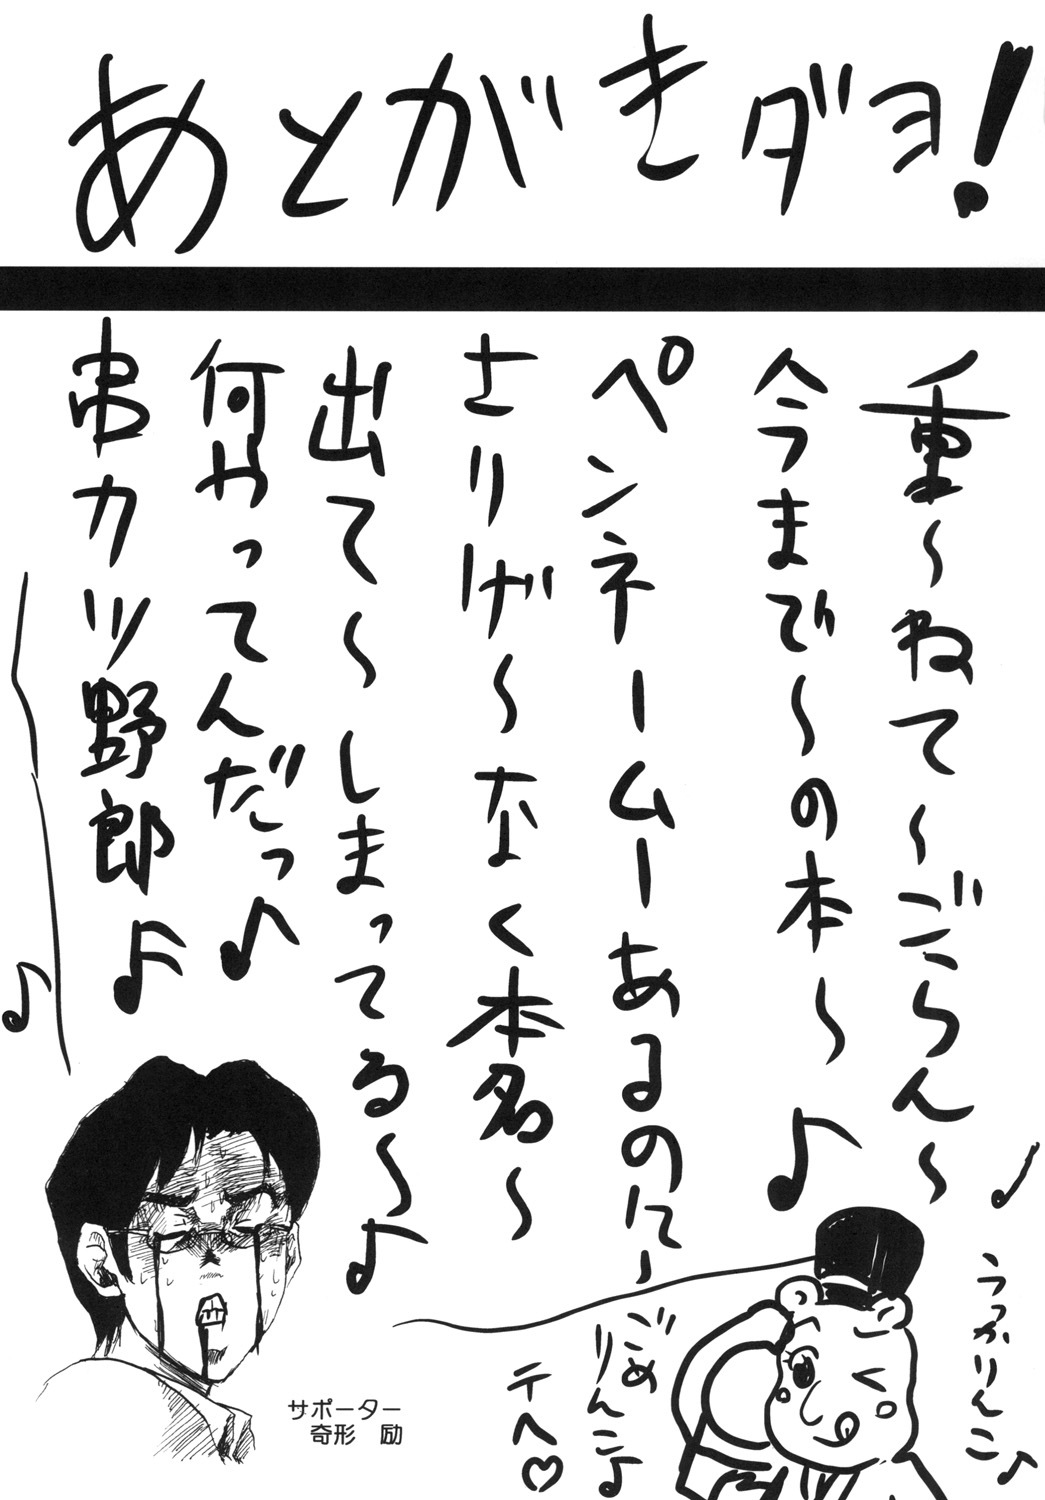 あとがきダヨ!
重～ねて～ごらん～
今まで～の本～♪
ペンネームーあるのに～
さりげ～なく本名～
出て～しまってる～♪
何やってんだっ♪
串カツ野郎♪
♪
♪
うっかりんこ♪
ごめ
りんこ♪
テヘ♡
サポーター
奇形 励